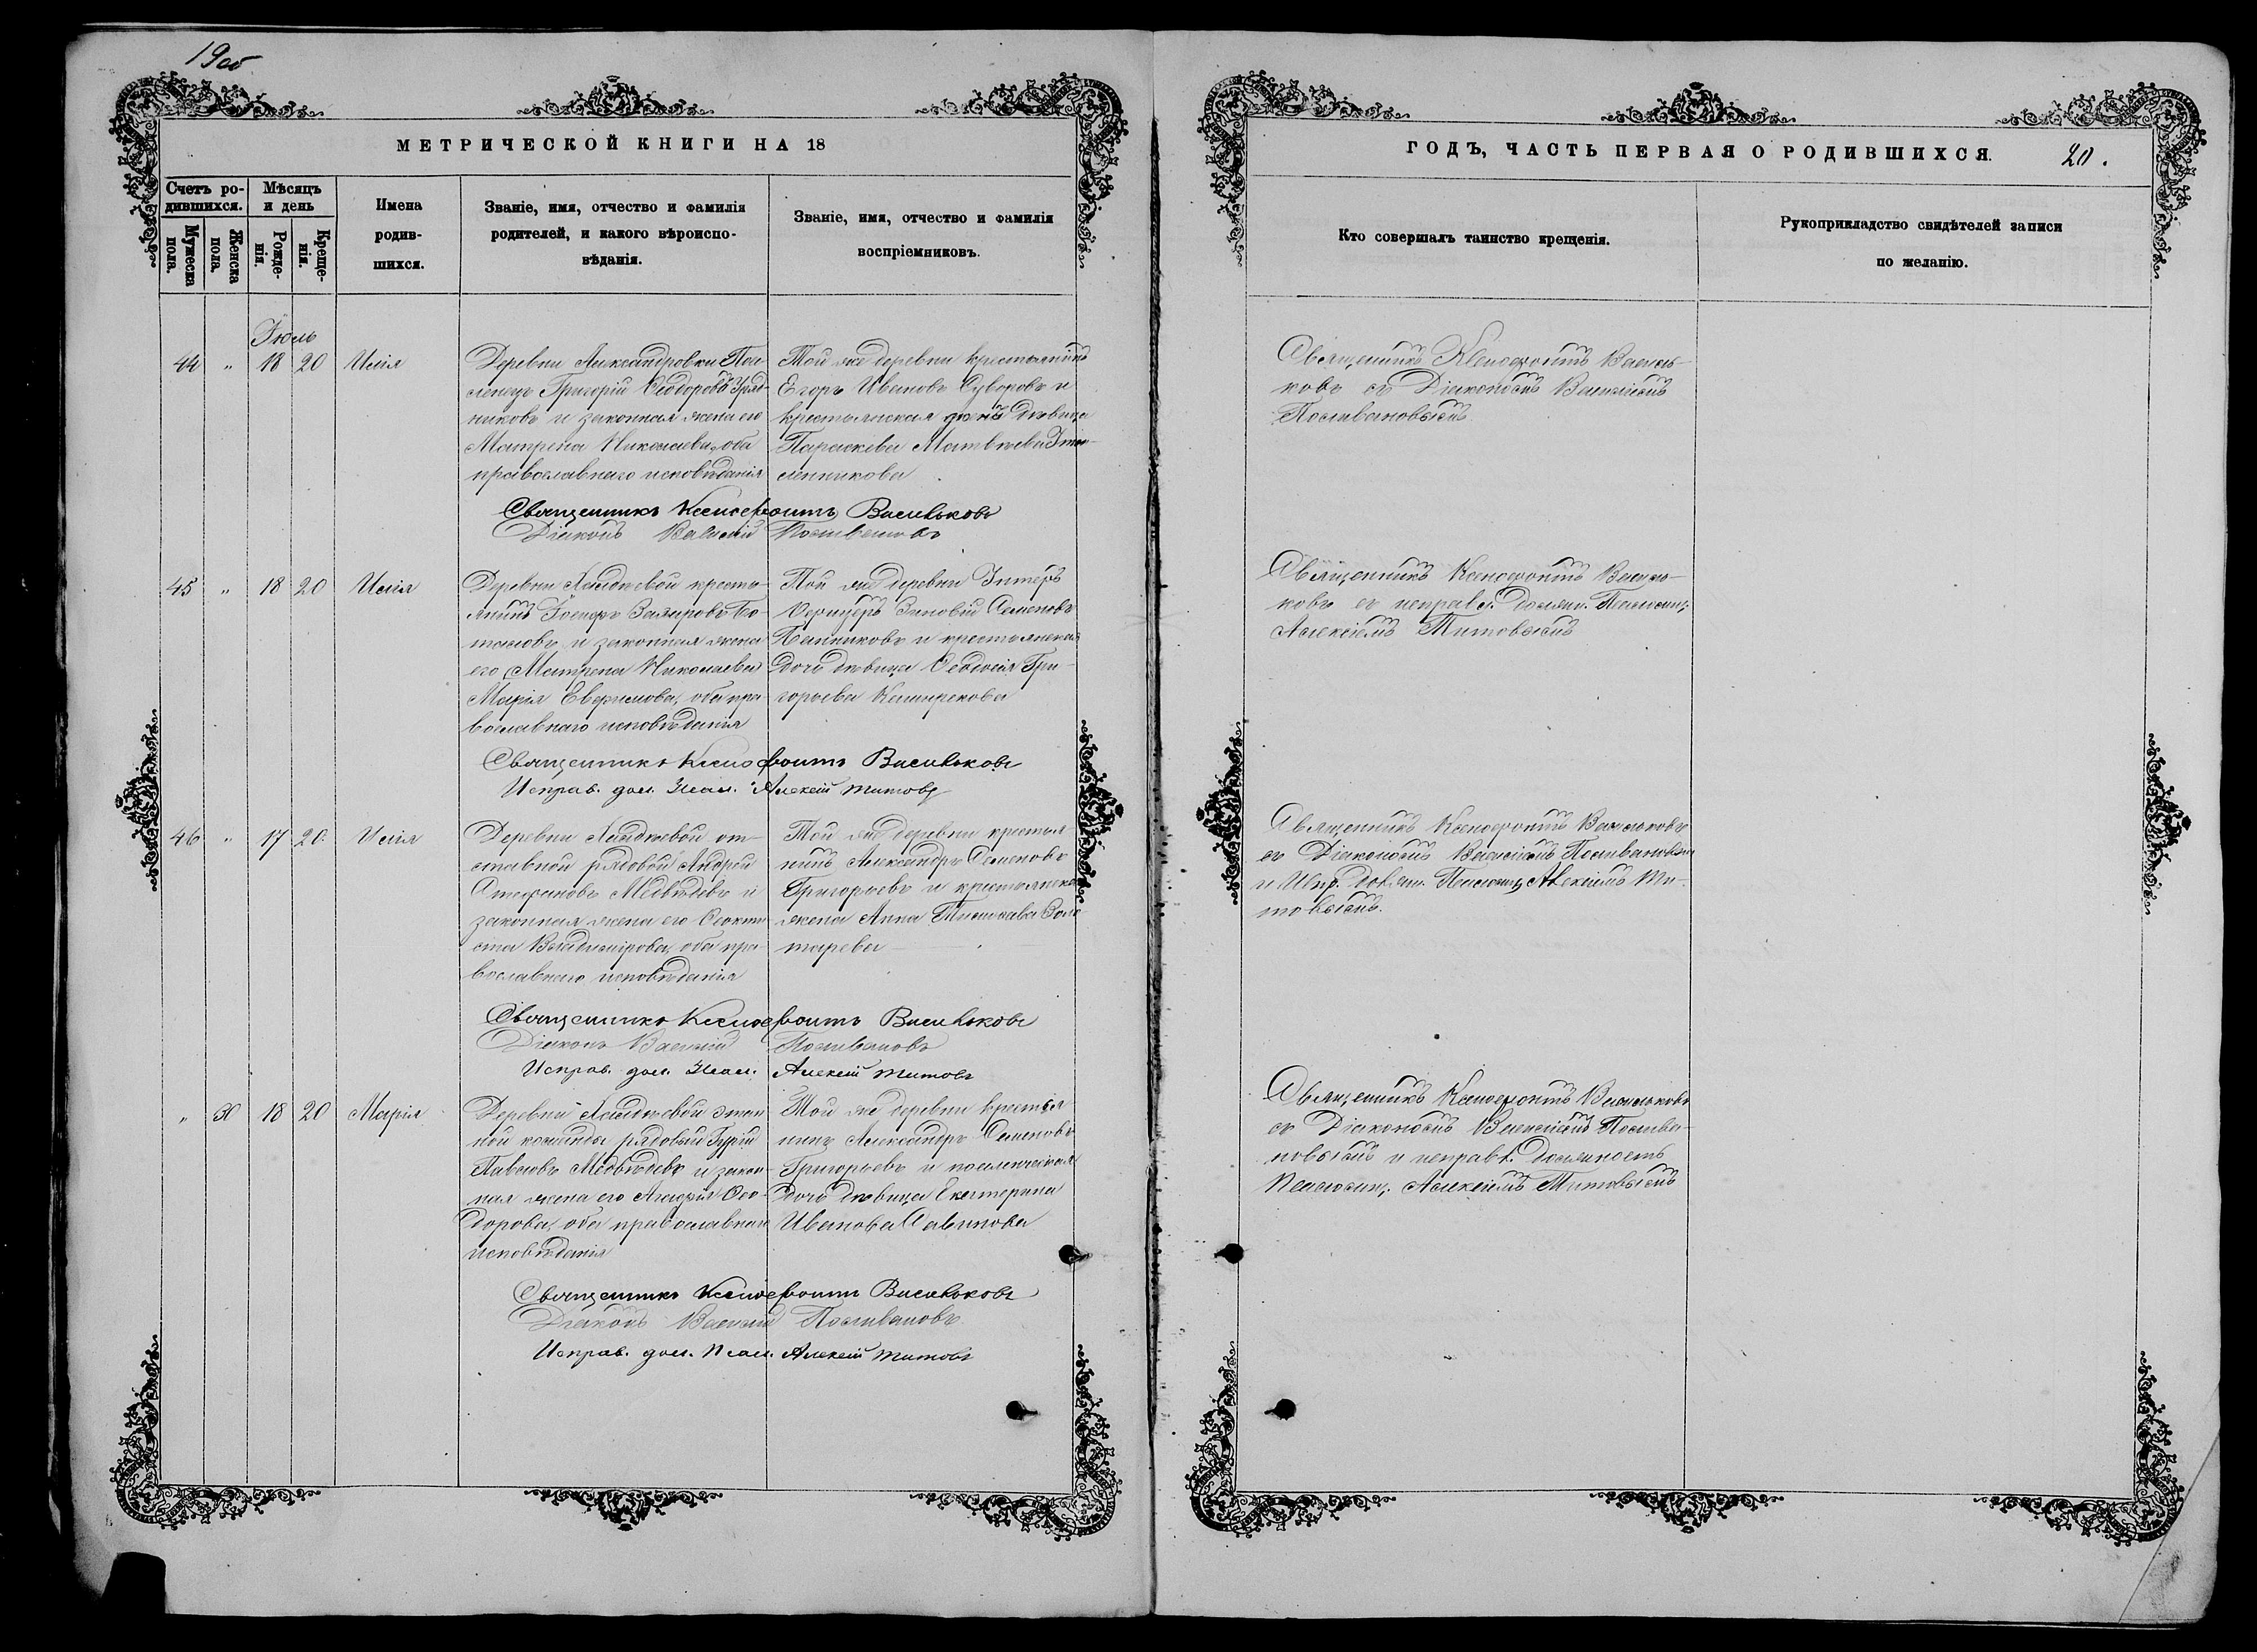 19об
МЕТРИЧЕСКОЙ КНИГИ НА 18
Счетъ ро-
дившихся.
Мужеска пола.
Женска пола.
Мѣсяцъ и день
Рожде-
нія.
Креще-
нія.
Имена
родив-
шихся.
Званіе, имя, отчество и фамилія
родителей, и какого вѣроиспо-
вѣданія.
Званіе, имя, отчество и фамилія
воспріемниковъ.
Іюль
44 " 18 20 Илія
Деревни Александровки По-
селенецъ Григорій Ѳеодоровъ
никовъ и законная жена его
Матрена Николаева, оба
православнаго исповѣданія
Той же деревни крестьянинъ
Егоръ Ивановъ Суворовъ и
крестьянская дочь дѣвица
Параскева Матвѣева
Священникъ Ксенофонтъ Васильковъ
Діаконъ Василій Поливановъ
45 " 18 20 Илія
Деревни крестья-
нинъ Іосифъ
и законная жена
его Матрена Николаева
Марія Евфимова, оба пра-
вославнаго исповѣданія
Той же деревни Унтеръ
Офицеръ Зиновій Семеновъ
и крестьянская
дочь дѣвица Ѳеодосія Гри-
горьева
Священникъ Ксенофонтъ Васильковъ
Исправ. дол. Псал. Алексій Титовъ
46 " 17 20 Илія
Деревни от-
ставной рядовой Андрей
Стефановъ Медвѣдевъ и
законная жена его Ѳеокти-
ста Владимірова, оба пра-
вославнаго исповѣданія
Той же деревни крестья-
нинъ Александръ Семеновъ
Григорьевъ и крестьянская
жена Анна Золо-
тарева
Священникъ Ксенофонтъ Васильковъ
Діаконъ Василій Поливановъ
Исправ. дол. Псал. Алексій Титовъ
" 30 18 20 Марія
Деревни этап-
ной команды рядовый Гурій
Павловъ Медвѣдевъ и закон-
ная жена его Ѳео-
дорова, оба православнаго
исповѣданія
Той же деревни крестья-
нинъ Александръ Семеновъ
Григорьевъ и поселенческая
дочь дѣвица Екатерина
Иванова
Священникъ Ксенофонтъ Васильковъ
Діаконъ Василій Поливановъ
Исправ. дол. Псал. Алексій Титовъ
ГОДЪ, ЧАСТЬ ПЕРВАЯ О РОДИВШИХСЯ. 20.
Кто совершалъ таинство крещенія.
Рукоприкладство свидѣтелей записи
по желанію.
Священникъ Ксенофонтъ Василь-
ковъ съ Діакономъ Василіемъ
Поливановымъ
Священникъ Ксенофонтъ Василь-
ковъ съ исправл. должн. Псаломщ.
Алексіемъ Титовымъ
Священникъ Ксенофонтъ Васильковъ
съ Діакономъ Василіемъ Поливановым
и Испр. должн. Псаломщ. Алексіемъ Ти-
товымъ.
Священникъ Ксенофонтъ Васильковъ
съ Діакономъ Василіемъ Полива-
новымъ и исправл. должность
Псаломщ. Алексіемъ Титовымъ